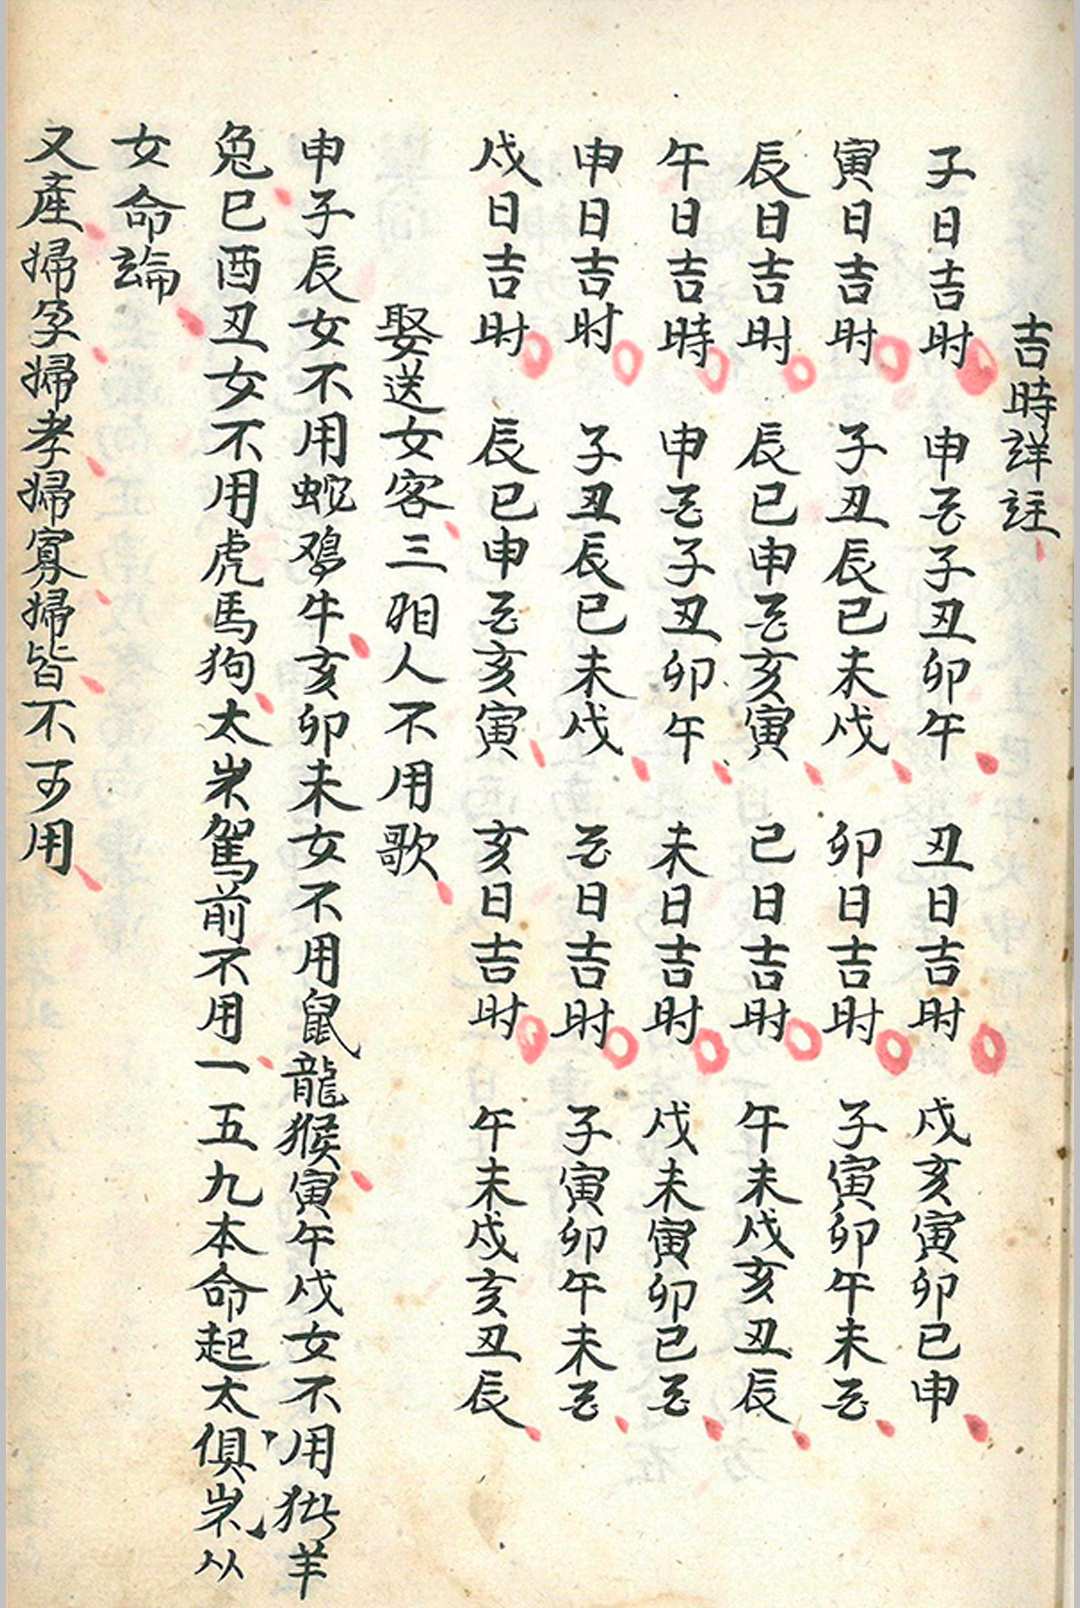 吉時詳註
子日吉时 申酉子丑卯午 丑日吉时 戌亥寅卯巳申
寅日吉时 子丑辰巳未戌 卯日吉时 子寅卯午未酉
辰日吉时 辰巳申酉亥寅 巳日吉时 午未戌亥丑辰
午日吉時 申酉子丑卯午 未日吉时 戌未寅卯巳酉
申日吉时 子丑辰巳未戌 酉日吉时 子寅卯午未酉
戌日吉时 辰巳申酉亥寅 亥日吉时 午未戌亥丑辰
娶送女客三相人不用歌
申子辰女不用蛇鸡牛亥卯未女不用鼠龍猴寅午戌女不用猪羊
兔巳酉丑女不用虎馬狗太岁駕前不用一五九本命起太俱岁从
女命論
又產婦孕婦孝婦寡婦皆不可用